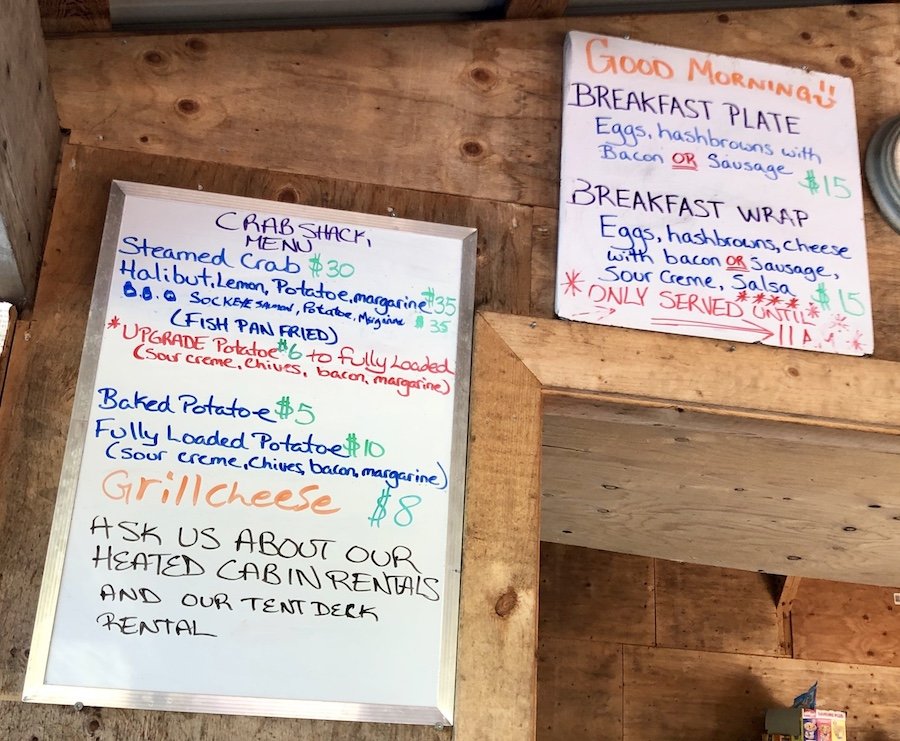 CRAB SHACK,
MENU
Steamed Crab $30
Halibut, Lemon, Potatoe, margarine $35
B.B.Q SOCKEYE Salmon, Potatoe, Margarine $35
(FISH PAN FRIED)
*UPGRADE Potatoe $6 to Fully Loaded
(sour creme, Chives, bacon, margarine)
Baked Potatoe $5
Fully Loaded Potatoe $10
(sour creme, Chives, bacon, margarine)
Grill cheese $8
ASK US ABOUT OUR
HEATED CABIN RENTALS
AND OUR TENT DECK
RENTAL
GOOD MORNING!!
BREAKFAST PLATE
Eggs, hashbrowns with
Bacon OR Sausage
$15
BREAKFAST WRAP
Eggs, hashbrowns, cheese
with bacon OR Sausage,
Sour Creme, Salsa $15
* ONLY SERVED UNTIL ****
11 A.M *